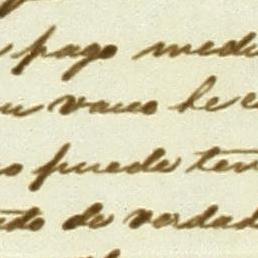 pago medi
vano he e
puede ten
do de verdad